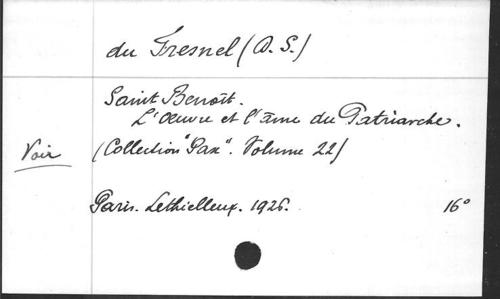 du Fresnel (D. S.)
Saint Benoît.
L'Œuvre et l'âme du Patriarche.
Voir
(Collection "Pax". Volume 22)
Paris. Lethielleux. 1926. 16°